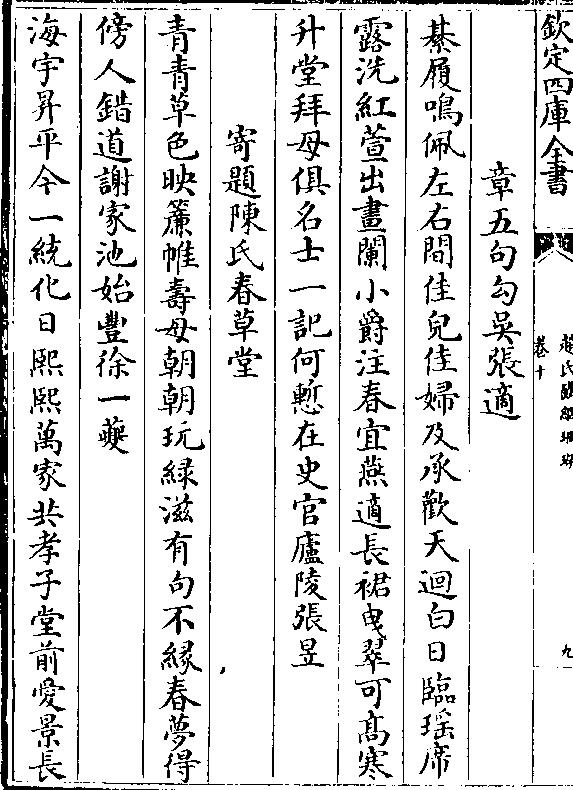 欽定四庫全書
趙氏鐵網珊瑚
卷十
九
章五句勾吳張適
綦履鳴佩左右間佳兒佳婦及承歡天迴白日臨瑶席
露洗紅萱出畫闌小爵注春宜燕適長裾曳翠可髙寒
升堂拜母俱名士一記何慙在史官廬陵張昱
寄題陳氏春草堂
青青草色映簾帷壽母朝朝玩緑滋有句不緣春夢得
傍人錯道謝家池始豐徐一夔
海宇昇平今一統化日熙熙萬家共孝子堂前愛景長